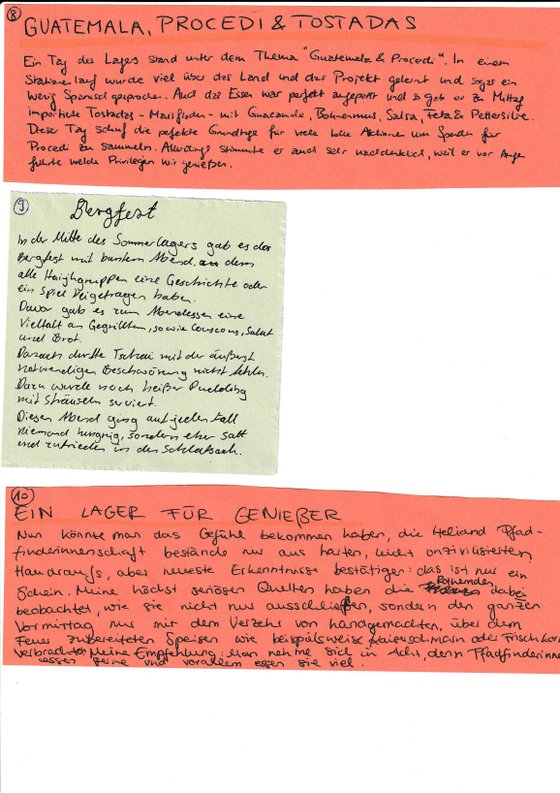 8
GUATEMALA, PROCEDI & TOSTADAS
Ein Tag des Lagers stand unter dem Thema "Guatemala & Procedi". In einem
Stationenlauf wurde viel über das Land und das Projekt gelernt und sogar ein
wenig Spanisch gesprochen. Auch das Essen war perfekt angepasst und so gab es zu Mittag
importierte Tostadas - Maisfladen - mit Guacamole, Bohnenmus, Salsa, Feta & Petersilie.
Dieser Tag schuf die perfekte Grundlage für viele tolle Aktionen um Spenden für
Procedi zu sammeln. Allerdings stimmte er auch sehr nachdenklich, weil er vor Augen
führte welche Privilegien wir genießen.
9
Bergfest
In der Mitte des Sommerlagers gab es das
Bergfest mit buntem Abend, an dem
alle Haijkgruppen eine Geschichte oder
ein Spiel beigetragen haben.
Davor gab es zum Abendessen eine
Vielfalt an Gegrilltem, sowie Couscous, Salat
und Brot.
Danach durfte Tschai mit der äußerst
notwendigen Beschwörung nicht fehlen.
Dazu wurde noch heißer Pudding
mit Sträuseln serviert.
Diesen Abend ging auf jeden Fall
niemand hungrig, sondern eher satt
und zufrieden in den Schlafsack.
10
EIN LAGER FÜR GENIEßER
Nun könnte man das Gefühl bekommen haben, die Heliand Pfad-
finderinnenschaft bestände nur aus harten, leicht unzivilisierten
Haudraufs, aber neueste Erkenntnisse bestätigen: das ist nur ein
Schein. Meine höchst seriösen Quellen haben die dabei
beobachtet, wie sie nicht nur ausschließen, sondern den ganzen
Vormittag nur mit dem Verzehr von handgemachten, über dem
Feuer zubereiteten Speisen wie beispielsweise Kaiserschmarn oder Frischkorn
verbrachten. Meine Empfehlung: Man nehme sich in Acht, denn Pfadfinderinnen
essen gerne und vorallem essen sie viel.